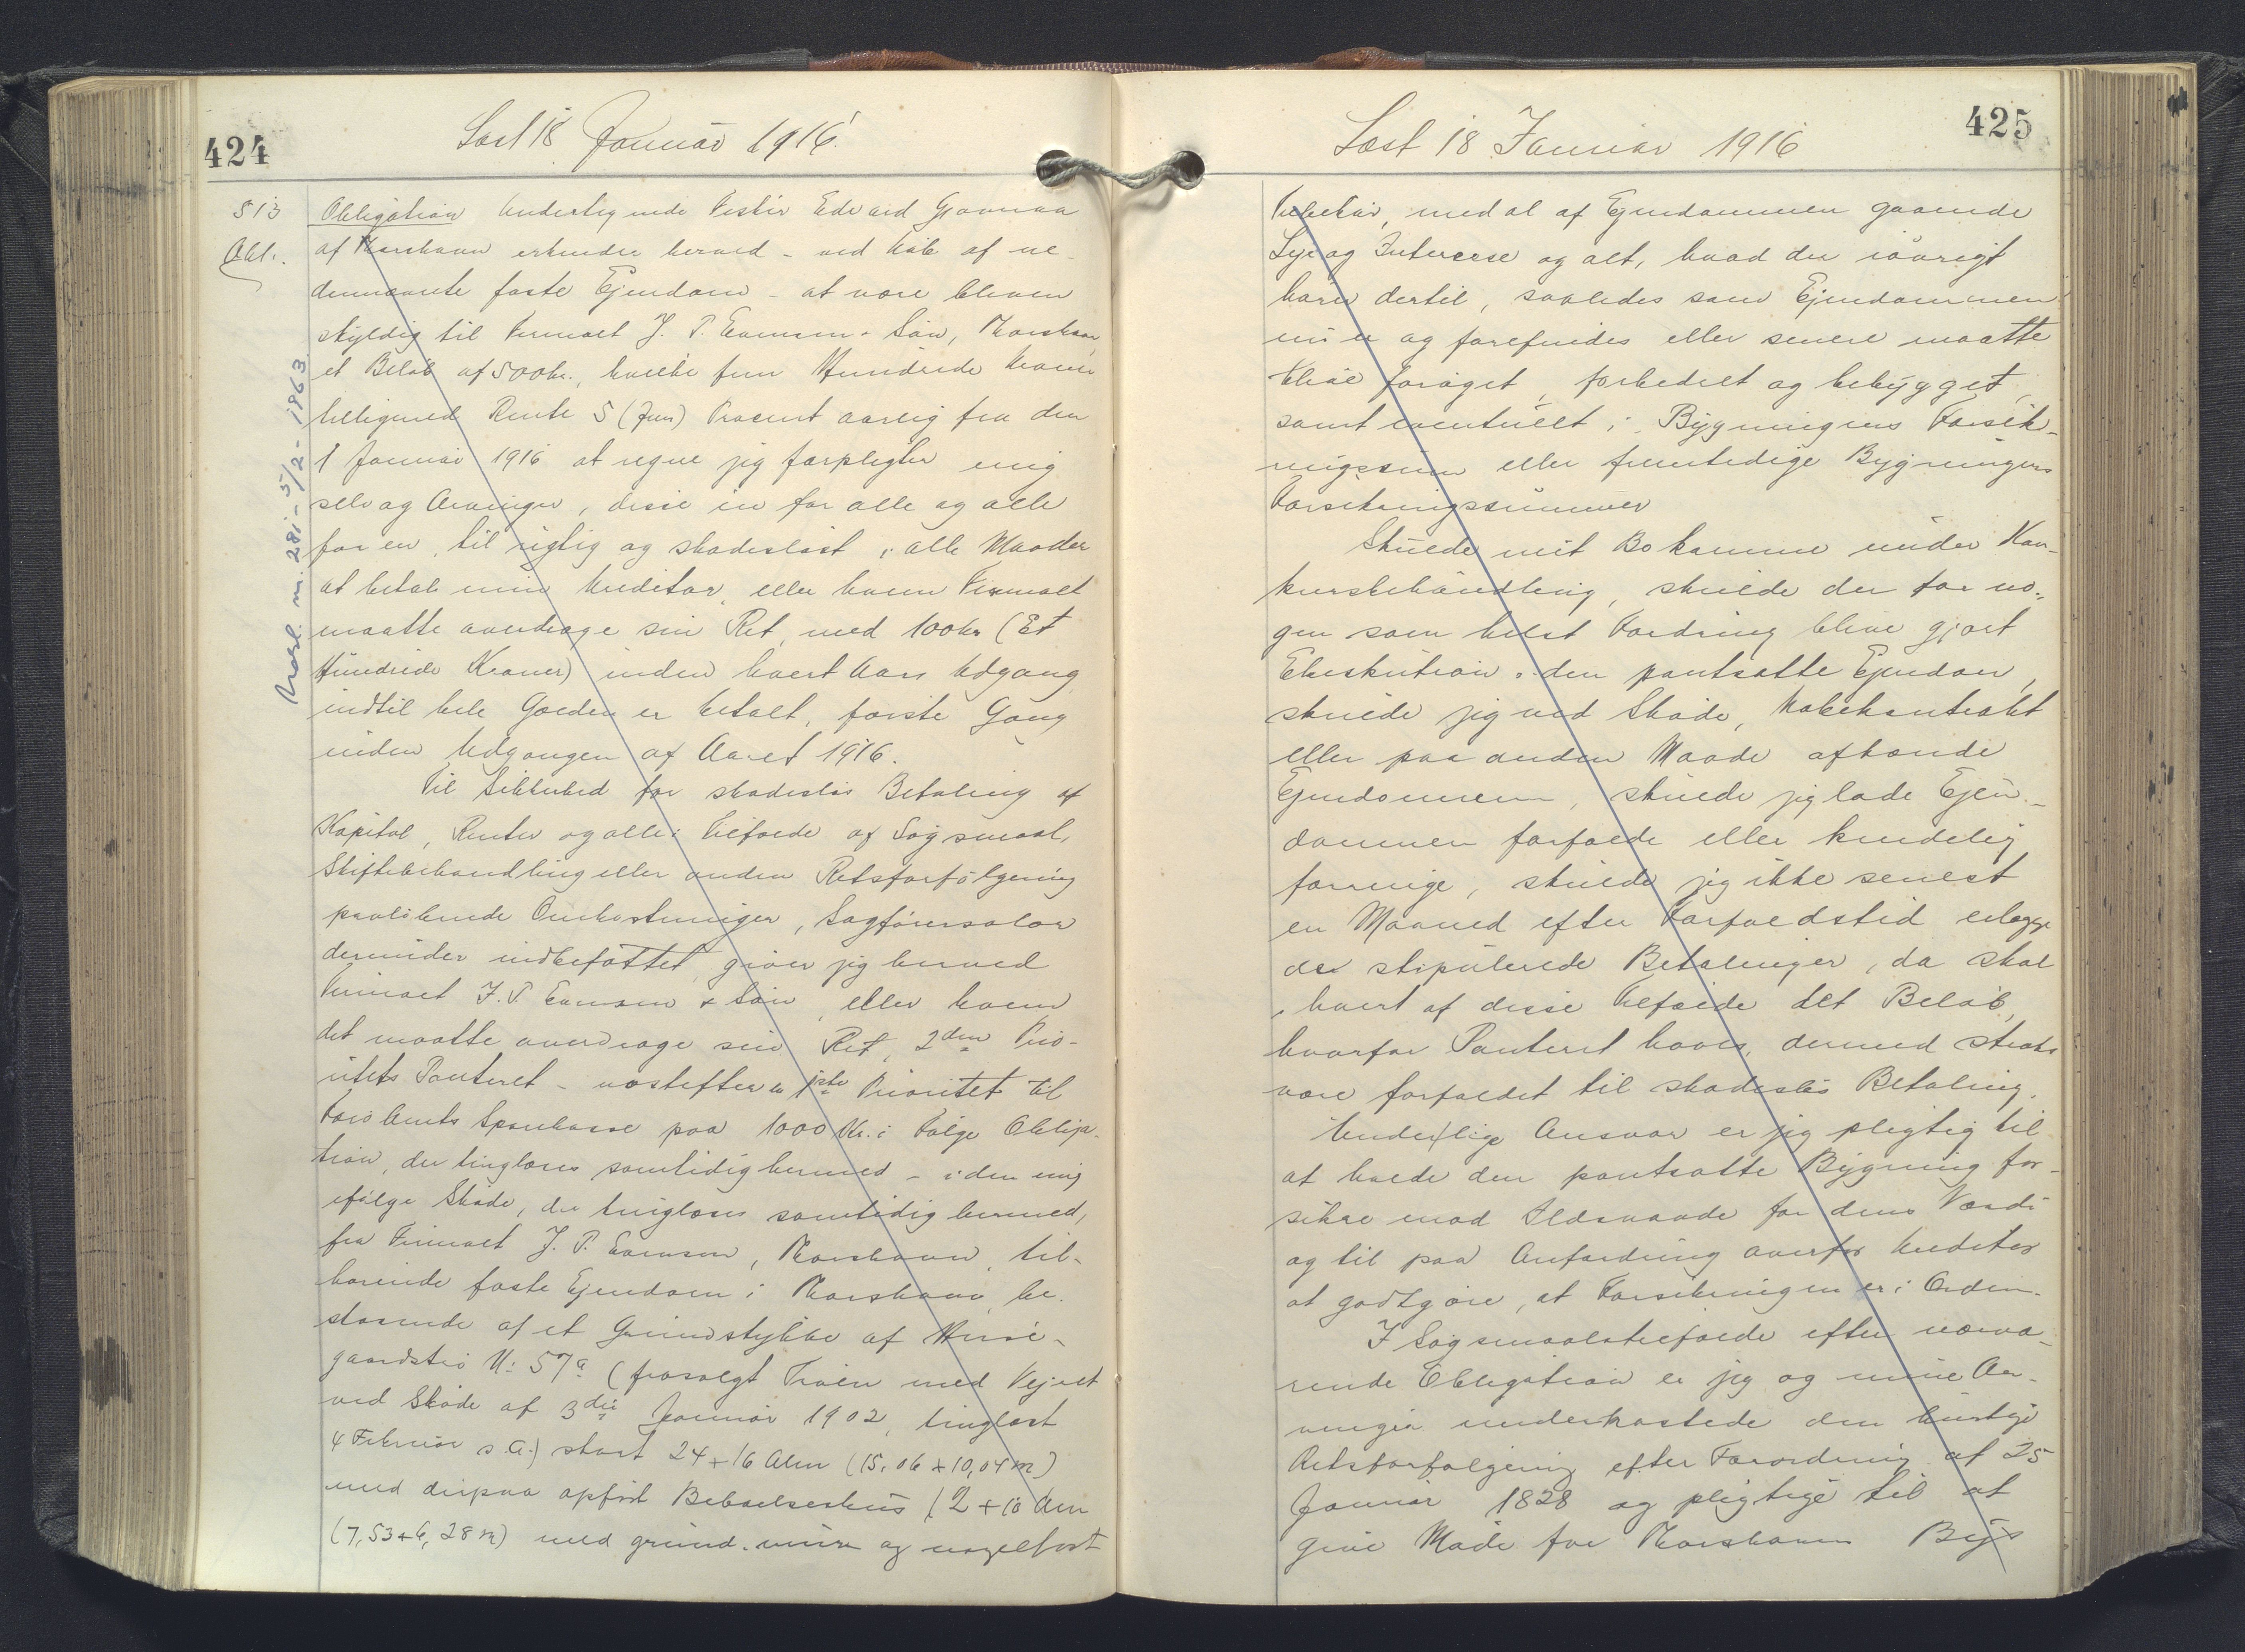 424
Læst 18 Januar 1916.
513
Obl.
Aflyst. m. 281 - 5/2 - 1863
Obligation Undertegnede Fisker Edvard
af Thorshavn erkender herved - ved Køb af ne-
dennævnte faste Ejendom - at være bleven
skyldig til Firmaet J. P. & Søn, Thorshavn,
et Beløb af 500 kr., hvilke fem Hundrede Kroner
tilligemed Rente 5 (fem) Procent aarlig fra den
1 Januar 1916 at regne jeg forpligter mig
selv og Arvinger, disse en for alle og alle
for en, til rigtig og skadesløst i alle Maader
at betale min Kreditor, eller hvem Firmaet
maatte overdrage sin Ret, med 100 kr (Et
Hundrede Kroner) inden hvert Aars Udgang
indtil hele Gælden er betalt, første Gang
inden Udgangen af Aaret 1916.
Til Sikkerhed for skadesløs Betaling af
Kapital, Renter og alle i Tilfælde af Søgsmaal,
Skiftebehandling eller anden Retsforfølgning
paaløbende Omkostninger, Sagførersalær
derunder indbefattet, giver jeg herved
Firmaet J. P. & Søn, eller hvem
det maatte overdrage sin Ret, 2den Prio-
ritets Panteret - næstefter en 1ste Prioritet til
Færø Amts Sparekasse paa 1000 Kr. i Følge Obliga-
tion, der tinglæses samtidig hermed - i den mig
ifølge Skøde, der tinglæses samtidig hermed,
fra Firmaet J. P. , Thorshavn, til-
hørende faste Ejendom i Thorshavn, be-
staaende af et Grundstykke af
No 57a (frasolgt med Vejret
ved Skøde af 3die Januar 1902, tinglæst
4 Februar s. A.) stort 24 + 16 Alen (15,06 + 10,04 m)
med derpaa opført Beboelseshus 12 + 10 Alen
(7,53 + 6,28 m) med grund- mur og nagelfast
425
Læst 18 Januar 1916
Tilbehør, med al af Ejendommen gaaende
Leje og Interesse og alt, hvad der iøvrigt
hører dertil, saaledes som Ejendommen
nu er og forefindes eller senere maatte
blive forøget, forbedret og bebygget,
samt eventuelt i Bygningens Forsik-
ringssum eller fremtidige Bygningers
Forsikringssummer
Skulde mit Bo komme under Kon-
kursbehandling, skulde der for no-
gen som helst Fordring blive gjort
Eksekution i den pantsatte Ejendom,
skulde jeg ved Skøde, Købekontrakt
eller paa anden Maade afhænde
Ejendommen, skulde jeg lade Ejen-
dommen forfalde eller kendelig
forringe, skulde jeg ikke senest
en Maaned efter Forfaldstid erlægge
de stipulerede Betalinger, da skal
i hvert af disse Tilfælde det Beløb,
hvorfor Panteret haves, dermed straks
være forfaldet til skadesløs Betaling.
Under lige Ansvar er jeg pligtig til
at holde den pantsatte Bygning for-
sikre mod Ildsvaade for dens Værdi
og til paa Anfordring overfor Kreditor
at godtgøre, at Forsikringen er i Orden.
I Søgsmaalstilfælde efter nærvæ-
rende Obligation er jeg og mine Ar-
vinger underkastede den hurtige
Retsforfølgning efter Forordning af 25
Januar 1828 og pligtige til at
give Møde for Thorshavns Bys